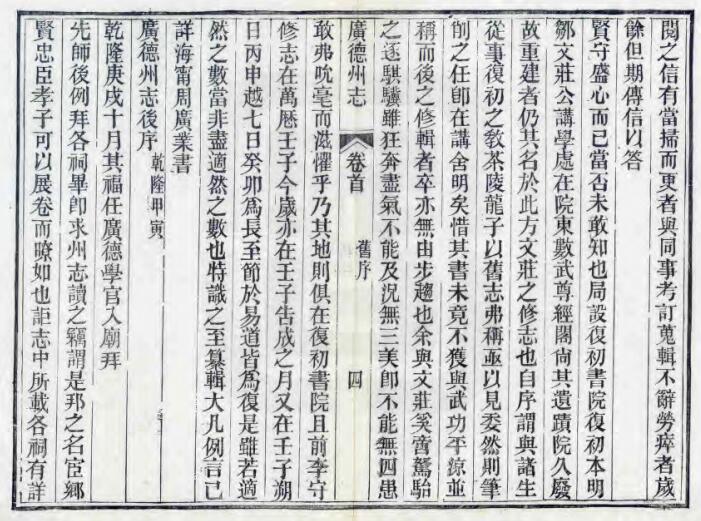 閱之信有當掃而更者與同事考訂蒐輯不辭勞瘁者歲
餘但期傳信以答
賢守盛心而已當否未敢知也局設復初書院復初本明
鄒文莊公講學處在院東數武尊經閣尚其遺蹟院久廢
故重建者仍其名於此方文莊之修志也自序謂與諸生
從事復初之教茶陵龍子以舊志弗稱亟以見委然則筆
削之任卽在講舍明矣惜其書未竟不獲與武功平涼並
稱而後之修輯者卒亦無由步趨也余與文莊奚啻駑駘
之逐騏驥雖狂奔盡氣不能及況無三美卽不能無四患
廣德州志 卷首 舊序 四
敢弗吮毫而滋懼乎乃其地則俱在復初書院且前李守
修志在萬厯壬子今歲亦在壬子告成之月又在壬子朔
日丙申越七日癸卯爲長至節於易道皆爲復是雖若適
然之數當非盡適然之數也特識之至纂輯大凡例言已
詳海甯周廣業書
廣德州志後序 乾隆甲寅
乾隆庚戌十月其福任廣德學官入廟拜
先師後例拜各祠畢卽求州志讀之竊謂是邦之名宦鄉
賢忠臣孝子可以展卷而瞭如也詎志中所載各祠有詳